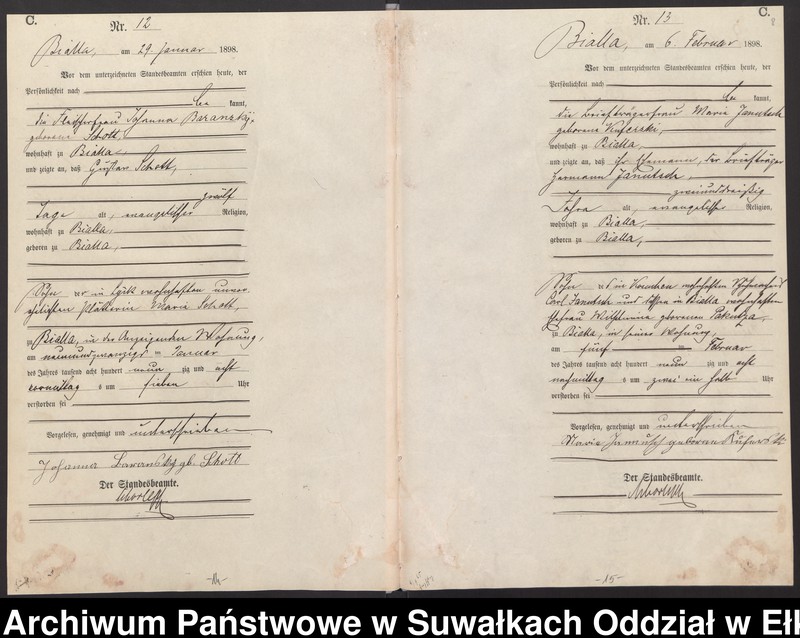 C.
Nr. 12
Bialla, am 29 Januar 1898.
Vor dem unterzeichneten Standesbeamten erschien heute, der
Persönlichkeit nach
be kannt,
die Fleischerfrau Johanna Baransky,
geborene Schott
wohnhaft zu Bialla
und zeigte an, daß Gustav Schott,
zwölf
Tage alt, evangelischer Religion,
wohnhaft zu Bialla,
geboren zu Bialla,
Sohn der in Lyck wohnhaften unver-
ehelichten Plätterin Maria Schott,
zu Bialla, in der Anzeigenden Wohnung,
am neunundzwanzigsten Januar
des Jahres tausend acht hundert neun zig und acht
vormittag s um sieben Uhr
verstorben sei
Vorgelesen, genehmigt und unterschrieben
Johanna Baransky gb. Schott
Der Standesbeamte.
-14-
C.
8
Nr. 13
Bialla, am 6. Februar 1898.
Vor dem unterzeichneten Standesbeamten erschien heute, der
Persönlichkeit nach
be kannt,
die Briefträgerfrau Marie Janutsch
geborene
wohnhaft zu Bialla,
und zeigte an, daß ihr Ehemann, der Briefträger
Hermann Janutsch
zweiunddreißig
Jahre alt, evangelischer Religion,
wohnhaft zu Bialla,
geboren zu Bialla,
Sohn des in wohnhaften
Carl Janutsch und dessen in Bialla wohnhaften
Ehefrau Wilhelmine geborenen
zu Bialla, in seiner Wohnung,
am fünf ten Februar
des Jahres tausend acht hundert neun zig und acht
nachmittag s um zwei ein halb Uhr
verstorben sei
Vorgelesen, genehmigt und unterschrieben
Marie Janutsch geborene
Der Standesbeamte.
-15-
Archiwum Państwowe w Suwałkach Oddział w Eł